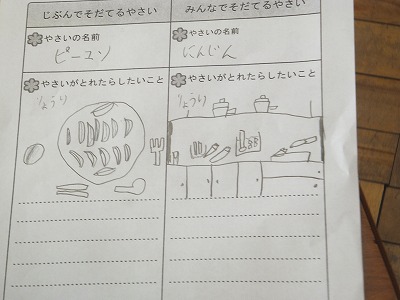 じぶんでそだてるやさい
みんなでそだてるやさい
やさいの名前
ピーマン
やさいの名前
にんじん
やさいがとれたらしたいこと
やさいがとれたらしたいこと
りょうり
りょうり